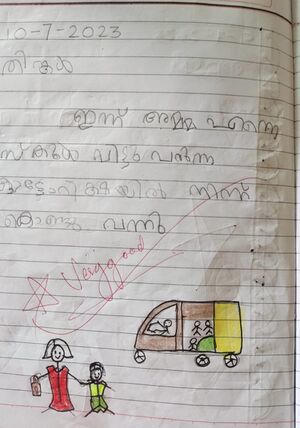 10-7-2023
തിങ്കൾ
ഇന്ന് അമ്മ എന്നെ
സ്കൂൾ വിട്ടു വന്ന
ഓട്ടോറിക്ഷയിൽ നിന്ന്
കൊണ്ടു വന്നു
Very good